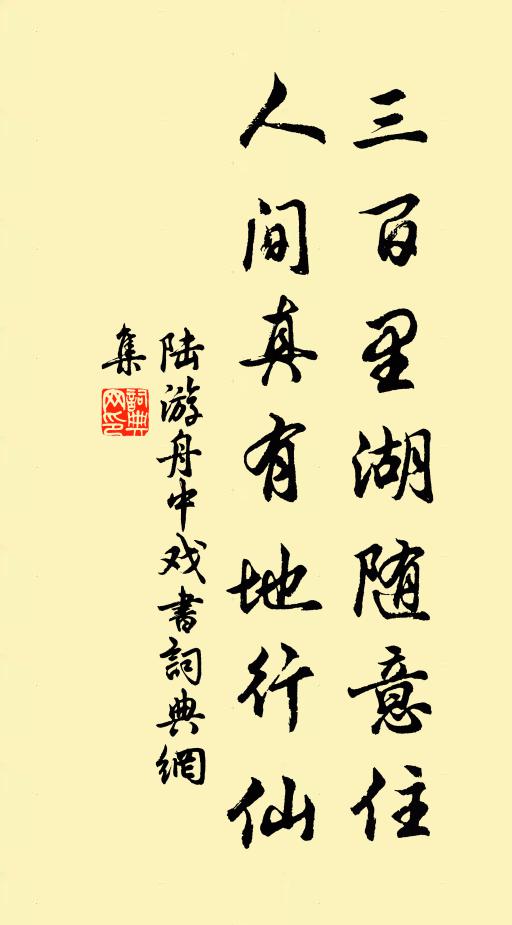 三百里湖随意住
人间真有地行仙
陆游舟中戏书詞典網
集
詞典网印